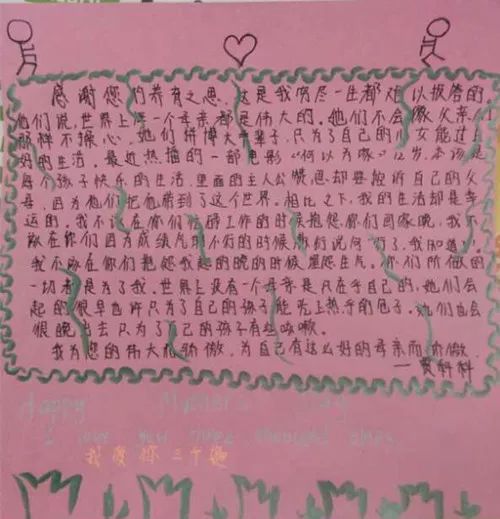 感谢您的养育之恩,这是我穷尽一生都难以报答的
他们说,世界上每一个母亲都是伟大的。她们不会像父亲
那样不操心,她们拼搏大半辈子,只为了自己的儿女能过上
好的生活。最近热播的一部电影《何以为家》12岁,本该是
每个孩子快乐的生活,里面的主人公赞恩却要控诉自己的父
母,因为他们把他带到了这个世界。相比之下,我的生活却是幸
运的。我不该在你们忙碌工作的时候抱怨你们回家晚,我不
该在你们因为成绩气的不行的时候和你们说何 行了,我知道了,
我不该在你们抱怨我起的晚的时候埋怨生气。你们所做的
一切都是为了我,世界上没有一个母亲是只在乎自己的,她们会
起的很早也许只为了自己的孩子能吃上热乎的包子,她们也会
很晚出去只为了自己的孩子有些咳嗽。
我为您的伟大而骄傲,为自己有这么好的母亲而骄傲。
Happy Mother's Day
I love you three thousand times
我爱你三千遍